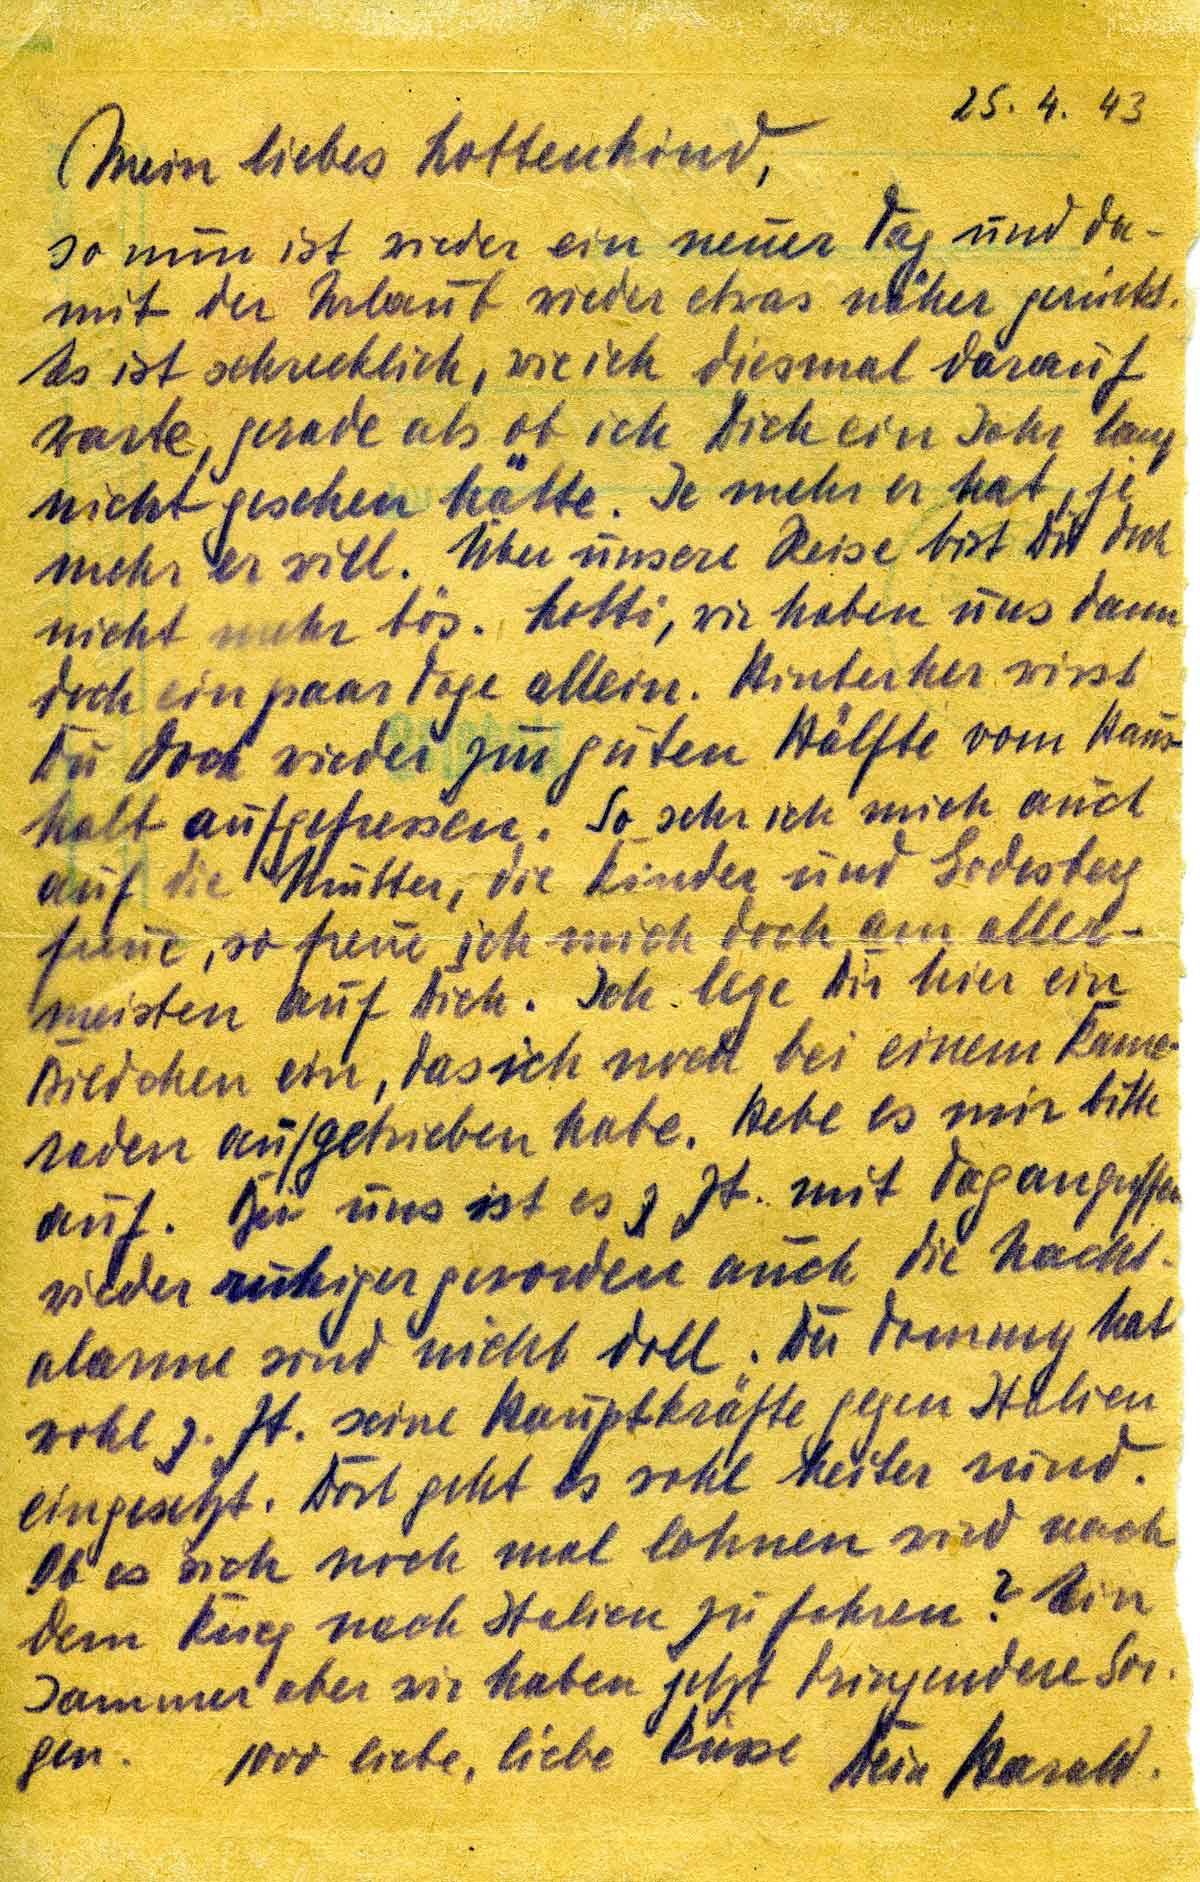 25. 4. 43
Mein liebes Lottenkind,
so nun ist wieder ein neuer Tag und da-
mit der Urlaub wieder etwas näher gerückt.
Es ist schrecklich, wie ich diesmal darauf
warte, gerade als ob ich Dich ein Jahr lang
nicht gesehen hätte. Je mehr er hat, je
mehr er will. Über unsere Reise bist Du doch
nicht mehr bös. Lotti, wir haben uns dann
doch ein paar Tage allein. Hinterher wirst
Du doch wieder zur guten Hälfte vom Haus-
halt aufgefressen. So sehr ich mich auch
auf die Mutter, die Kinder und Godesberg
freue, so freue ich mich doch am aller-
meisten auf Dich. Ich lege Dir hier ein
Bildchen ein, das ich noch bei einem Kame-
raden aufgetrieben habe. Hebe es mir bitte
auf. Bei uns ist es z Zt. mit Tagangriffen
wieder ruhiger geworden auch die Nacht-
alarme sind nicht doll. Du Tommy hat
wohl z. Zt. seine Hauptkräfte gegen Italien
eingesetzt. Dort geht es wohl heiter rund.
Ob es sich noch mal lohnen wird nach
dem Krieg nach Italien zu fahren? Ein
Jammer aber wir haben jetzt dringendere Sor-
gen. 1000 liebe, liebe Küsse Dein Harald.